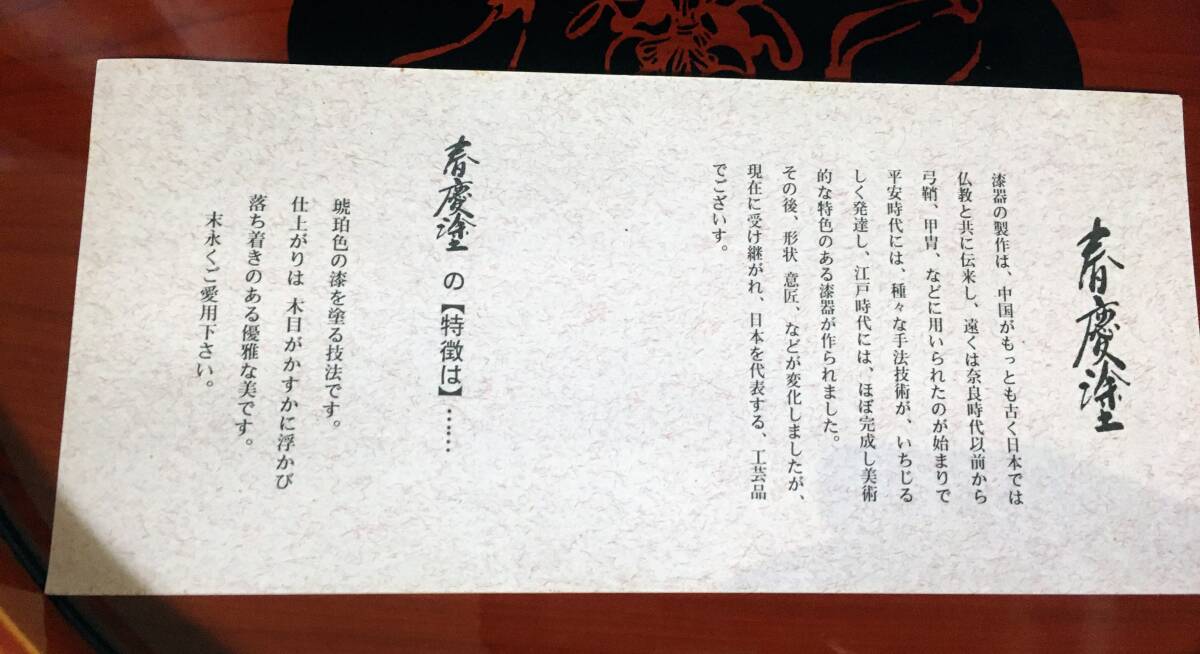 春慶塗
漆器の製作は、中国がもっとも古く日本では
仏教と共に伝来し、遠くは奈良時代以前から
弓鞘、甲冑、などに用いられたのが始まりで
平安時代には、種々な手法技術が、いちじる
しく発達し、江戸時代には、ほぼ完成し美術
的な特色のある漆器が作られました。
その後、形状 意匠、などが変化しましたが、
現在に受け継がれ、日本を代表する、工芸品
でございす。
春慶塗の【特徴は】……
琥珀色の漆を塗る技法です。
仕上がりは 木目がかすかに浮かび
落ち着きのある優雅な美です。
末永くご愛用下さい。